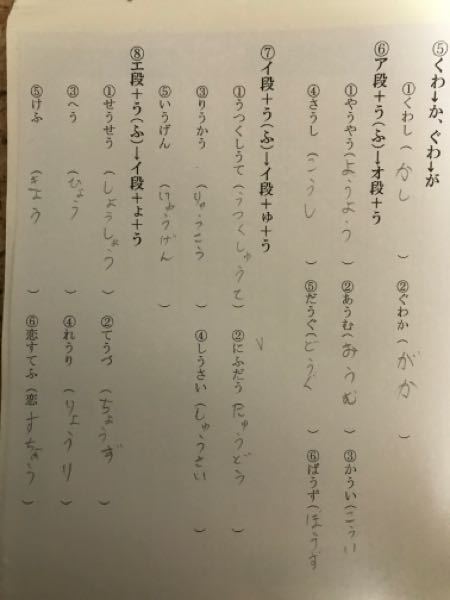 ⑤くわ→か、ぐわ→が
①くわし（かし）　②ぐわか（がか）
⑥ア段＋う（ふ）→オ段＋う
①やうやう（ようよう）　②あうむ（おうむ）　③かうい（こうい）
④さうし（こうし）　⑤だうぐ（どうぐ）　⑥ばうず（ぼうず）
⑦イ段＋う（ふ）→イ段＋ゅ＋う
①うつくしうて（うつくしゅうて）　②にふだう（にゅうどう）
③りうかう（りゅうこう）　④しうさい（しゅうさい）
⑤いうげん（けゅうげん）
⑧エ段＋う（ふ）→イ段＋ょ＋う
①せうせう（しょうしょう）　②てうづ（ちょうず）
③へう（ひょう）　④れうり（りょうり）
⑤けふ（きょう）　⑥恋すてふ（恋すちょう）